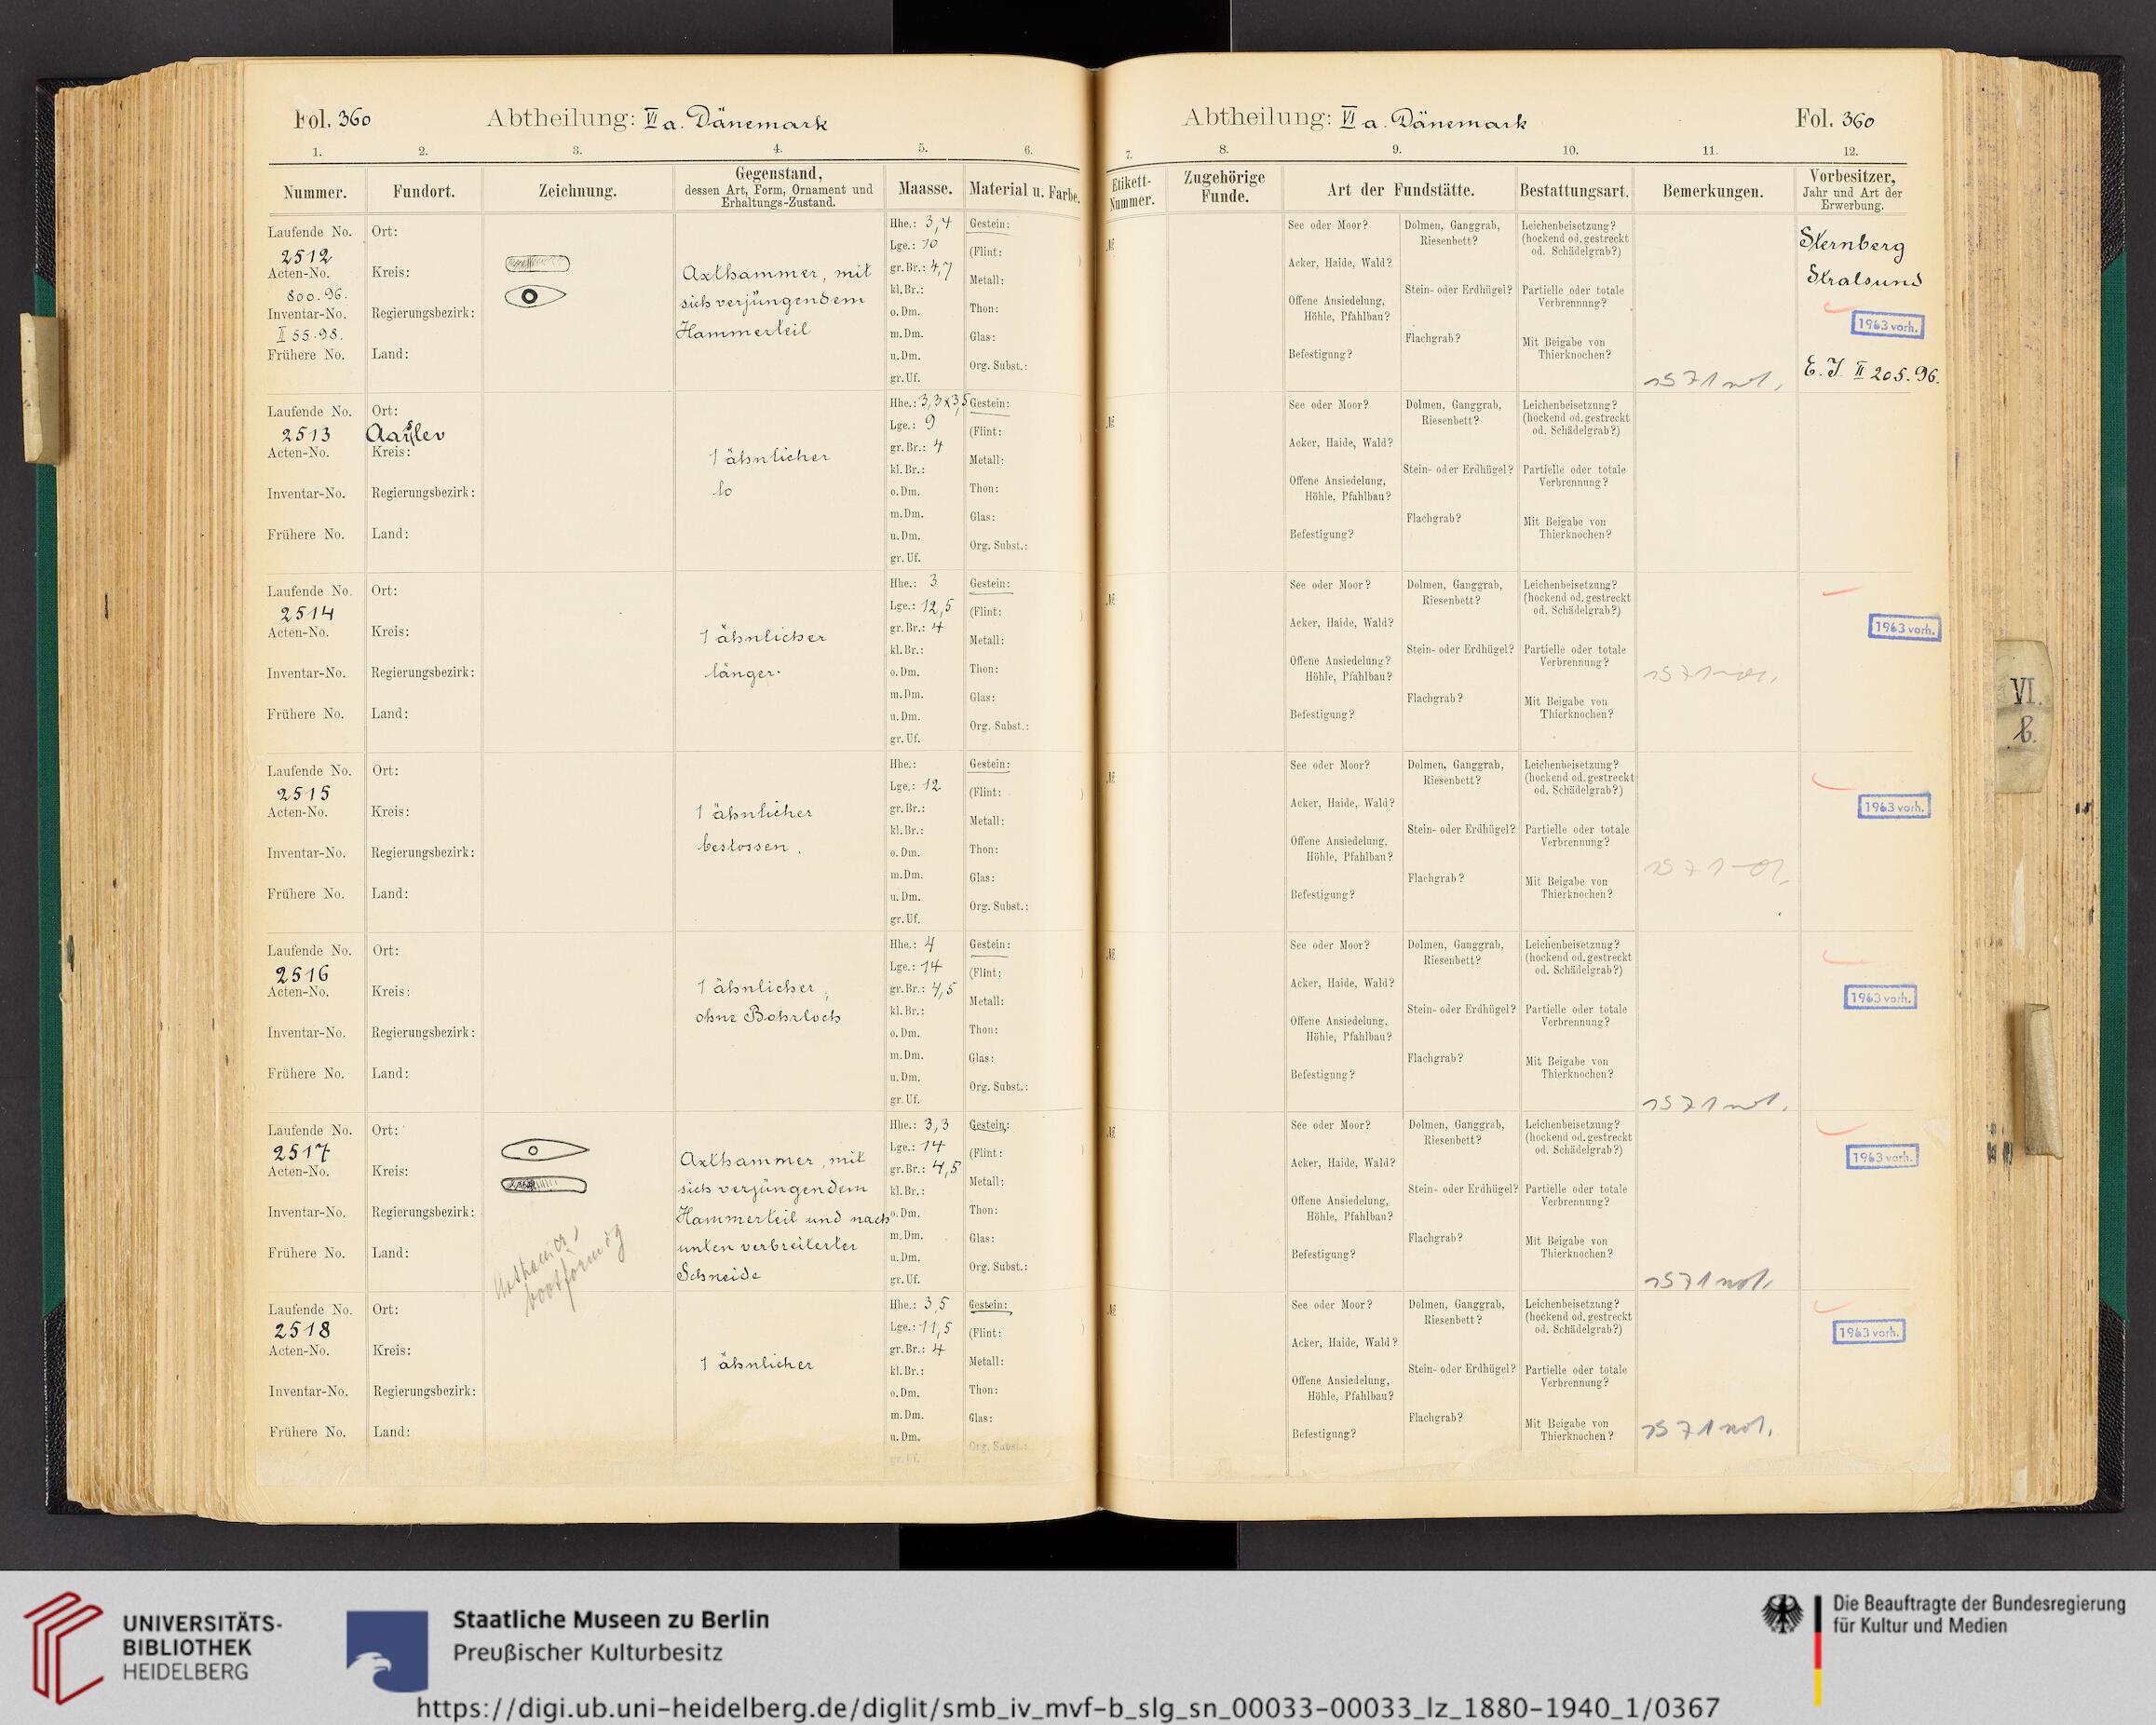 Fol. 360 Abtheilung: VI a. Dänemark
1. 2. 3. 4. 5. 6.
Nummer. Fundort. Zeichnung. Gegenstand, dessen Art, Form, Ornament und Erhaltungs-Zustand. Maasse. Material u. Farbe.
Abtheilung: VI a. Dänemark Fol. 360
7. 8. 9. 10. 11. 12.
Etikett-Nummer. Zugehörige Funde. Art der Fundstätte. Bestattungsart. Bemerkungen. Vorbesitzer, Jahr und Art der Erwerbung.
Laufende No.
2512
Acten-No.
800.96.
Inventar-No.
II 55.98.
Frühere No.
Ort:
Kreis:
Regierungsbezirk:
Land:
Axthammer, mit
sich verjüngendem
Hammerteil
Hhe.: 3,4
Lge.: 10
gr. Br.: 4,7
kl. Br.:
o. Dm.
m. Dm.
u. Dm.
gr. Uf.
Gestein:
(Flint: )
Metall:
Thon:
Glas:
Org. Subst.:
№
See oder Moor?
Acker, Haide, Wald?
Offene Ansiedelung,
Höhle, Pfahlbau?
Befestigung?
Dolmen, Ganggrab,
Riesenbett?
Stein- oder Erdhügel?
Flachgrab?
Leichenbeisetzung?
(hockend od. gestreckt
od. Schädelgrab?)
Partielle oder totale
Verbrennung?
Mit Beigabe von
Thierknochen?
Sternberg
Stralsund
1963 vorh.
E. J. II 205.96.
Laufende No.
2513
Acten-No.
Inventar-No.
Frühere No.
Ort:
Kreis:
Regierungsbezirk:
Land:
1 ähnlicher
Hhe.: 3,3x3,5
Lge.: 9
gr. Br.: 4
kl. Br.:
o. Dm.
m. Dm.
u. Dm.
gr. Uf.
Gestein:
(Flint: )
Metall:
Thon:
Glas:
Org. Subst.:
№
See oder Moor?
Acker, Haide, Wald?
Offene Ansiedelung,
Höhle, Pfahlbau?
Befestigung?
Dolmen, Ganggrab,
Riesenbett?
Stein- oder Erdhügel?
Flachgrab?
Leichenbeisetzung?
(hockend od. gestreckt
od. Schädelgrab?)
Partielle oder totale
Verbrennung?
Mit Beigabe von
Thierknochen?
Laufende No.
2514
Acten-No.
Inventar-No.
Frühere No.
Ort:
Kreis:
Regierungsbezirk:
Land:
1 ähnlicher
länger.
Hhe.: 3
Lge.: 12,5
gr. Br.: 4
kl. Br.:
o. Dm.
m. Dm.
u. Dm.
gr. Uf.
Gestein:
(Flint: )
Metall:
Thon:
Glas:
Org. Subst.:
№
See oder Moor?
Acker, Haide, Wald?
Offene Ansiedelung?
Höhle, Pfahlbau?
Befestigung?
Dolmen, Ganggrab,
Riesenbett?
Stein- oder Erdhügel?
Flachgrab?
Leichenbeisetzung?
(hockend od. gestreckt
od. Schädelgrab?)
Partielle oder totale
Verbrennung?
Mit Beigabe von
Thierknochen?
1963 vorh.
Laufende No.
2515
Acten-No.
Inventar-No.
Frühere No.
Ort:
Kreis:
Regierungsbezirk:
Land:
1 ähnlicher
bestossen.
Hhe.:
Lge.: 12
gr. Br.:
kl. Br.:
o. Dm.
m. Dm.
u. Dm.
gr. Uf.
Gestein:
(Flint: )
Metall:
Thon:
Glas:
Org. Subst.:
№
See oder Moor?
Acker, Haide, Wald?
Offene Ansiedelung,
Höhle, Pfahlbau?
Befestigung?
Dolmen, Ganggrab,
Riesenbett?
Stein- oder Erdhügel?
Flachgrab?
Leichenbeisetzung?
(hockend od. gestreckt
od. Schädelgrab?)
Partielle oder totale
Verbrennung?
Mit Beigabe von
Thierknochen?
1963 vorh.
Laufende No.
2516
Acten-No.
Inventar-No.
Frühere No.
Ort:
Kreis:
Regierungsbezirk:
Land:
1 ähnlicher,
ohne Bohrloch
Hhe.: 4
Lge.: 14
gr. Br.: 4,5
kl. Br.:
o. Dm.
m. Dm.
u. Dm.
gr. Uf.
Gestein:
(Flint: )
Metall:
Thon:
Glas:
Org. Subst.:
№
See oder Moor?
Acker, Haide, Wald?
Offene Ansiedelung,
Höhle, Pfahlbau?
Befestigung?
Dolmen, Ganggrab,
Riesenbett?
Stein- oder Erdhügel?
Flachgrab?
Leichenbeisetzung?
(hockend od. gestreckt
od. Schädelgrab?)
Partielle oder totale
Verbrennung?
Mit Beigabe von
Thierknochen?
1963 vorh.
Laufende No.
2517
Acten-No.
Inventar-No.
Frühere No.
Ort:
Kreis:
Regierungsbezirk:
Land:
bootförmig
Axthammer, mit
sich verjüngendem
Hammerteil und nach
unten verbreiterter
Schneide
Hhe.: 3,3
Lge.: 14
gr. Br.: 4,5
kl. Br.:
o. Dm.
m. Dm.
u. Dm.
gr. Uf.
Gestein:
(Flint: )
Metall:
Thon:
Glas:
Org. Subst.:
№
See oder Moor?
Acker, Haide, Wald?
Offene Ansiedelung,
Höhle, Pfahlbau?
Befestigung?
Dolmen, Ganggrab,
Riesenbett?
Stein- oder Erdhügel?
Flachgrab?
Leichenbeisetzung?
(hockend od. gestreckt
od. Schädelgrab?)
Partielle oder totale
Verbrennung?
Mit Beigabe von
Thierknochen?
1963 vorh.
Laufende No.
2518
Acten-No.
Inventar-No.
Frühere No.
Ort:
Kreis:
Regierungsbezirk:
Land:
1 ähnlicher
Hhe.: 3,5
Lge.: 11,5
gr. Br.: 4
kl. Br.:
o. Dm.
m. Dm.
u. Dm.
gr. Uf.
Gestein:
(Flint: )
Metall:
Thon:
Glas:
Org. Subst.:
№
See oder Moor?
Acker, Haide, Wald?
Offene Ansiedelung,
Höhle, Pfahlbau?
Befestigung?
Dolmen, Ganggrab,
Riesenbett?
Stein- oder Erdhügel?
Flachgrab?
Leichenbeisetzung?
(hockend od. gestreckt
od. Schädelgrab?)
Partielle oder totale
Verbrennung?
Mit Beigabe von
Thierknochen?
1963 vorh.
VI.
b.
UNIVERSITÄTS-
BIBLIOTHEK
HEIDELBERG
Staatliche Museen zu Berlin
Preußischer Kulturbesitz
Die Beauftragte der Bundesregierung
für Kultur und Medien
https://digi.ub.uni-heidelberg.de/diglit/smb_iv_mvf-b_slg_sn_00033-00033_lz_1880-1940_1/0367